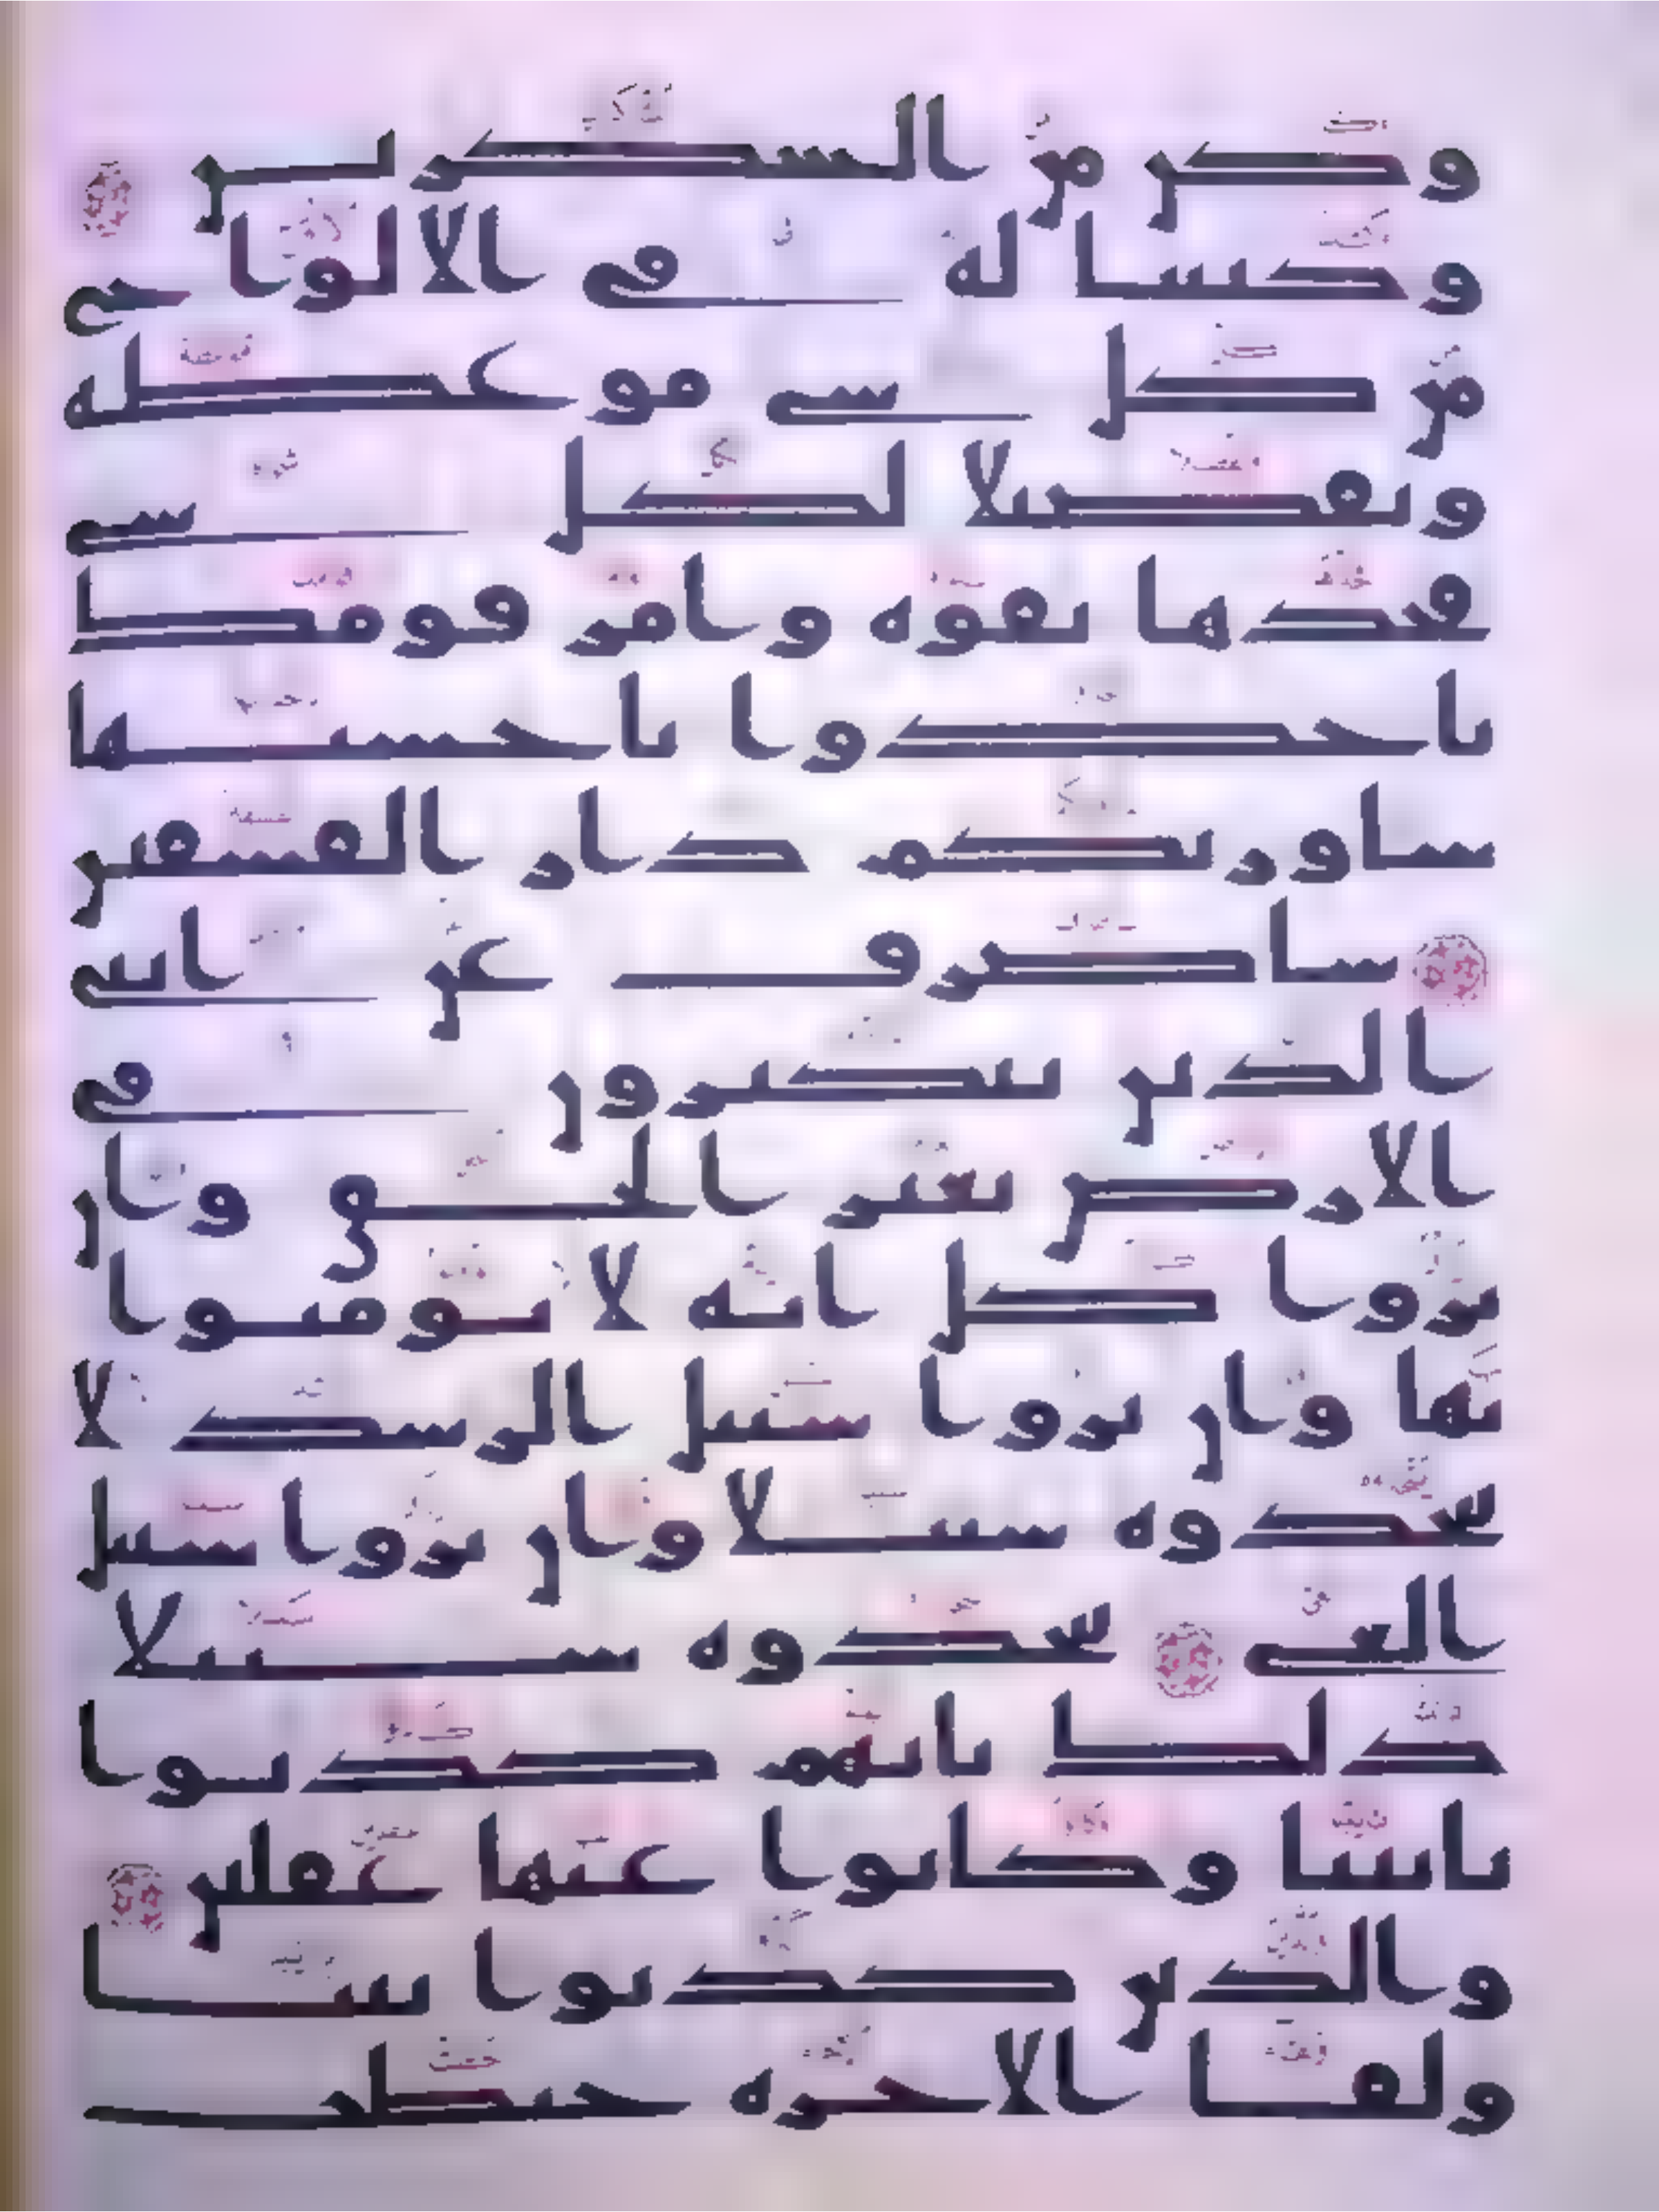 وكن من الشكرين
وكتبنا له في الالواح
من كل شي موعظه
وتفصيلا لكل شي
فخذها بقوه وامر قومك
ياخذوا باحسنها
ساوريكم دار الفسقين
ساصرف عن ايتي
الذين يتكبرون في
الارض بغير الحق وان
يروا كل ايه لا يومنوا
بها وان يروا سبيل الرشد لا
يتخذوه سبيلا وان يروا سبيل
الغي يتخذوه سبيلا
ذلك بانهم كذبوا
بايتنا وكانوا عنها غفلين
والذين كذبوا بيتنا
ولقا الاخره حبطت